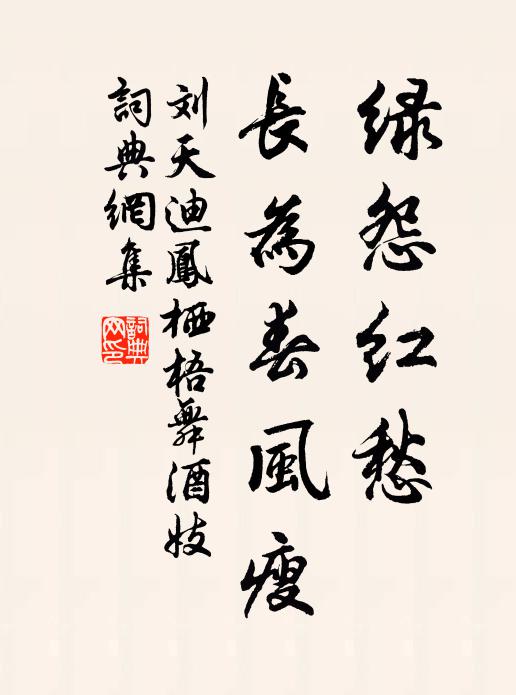 绿怨红愁
長為春風瘦
刘天迪鳳栖梧舞酒妓
詞典網集
詞典
网印